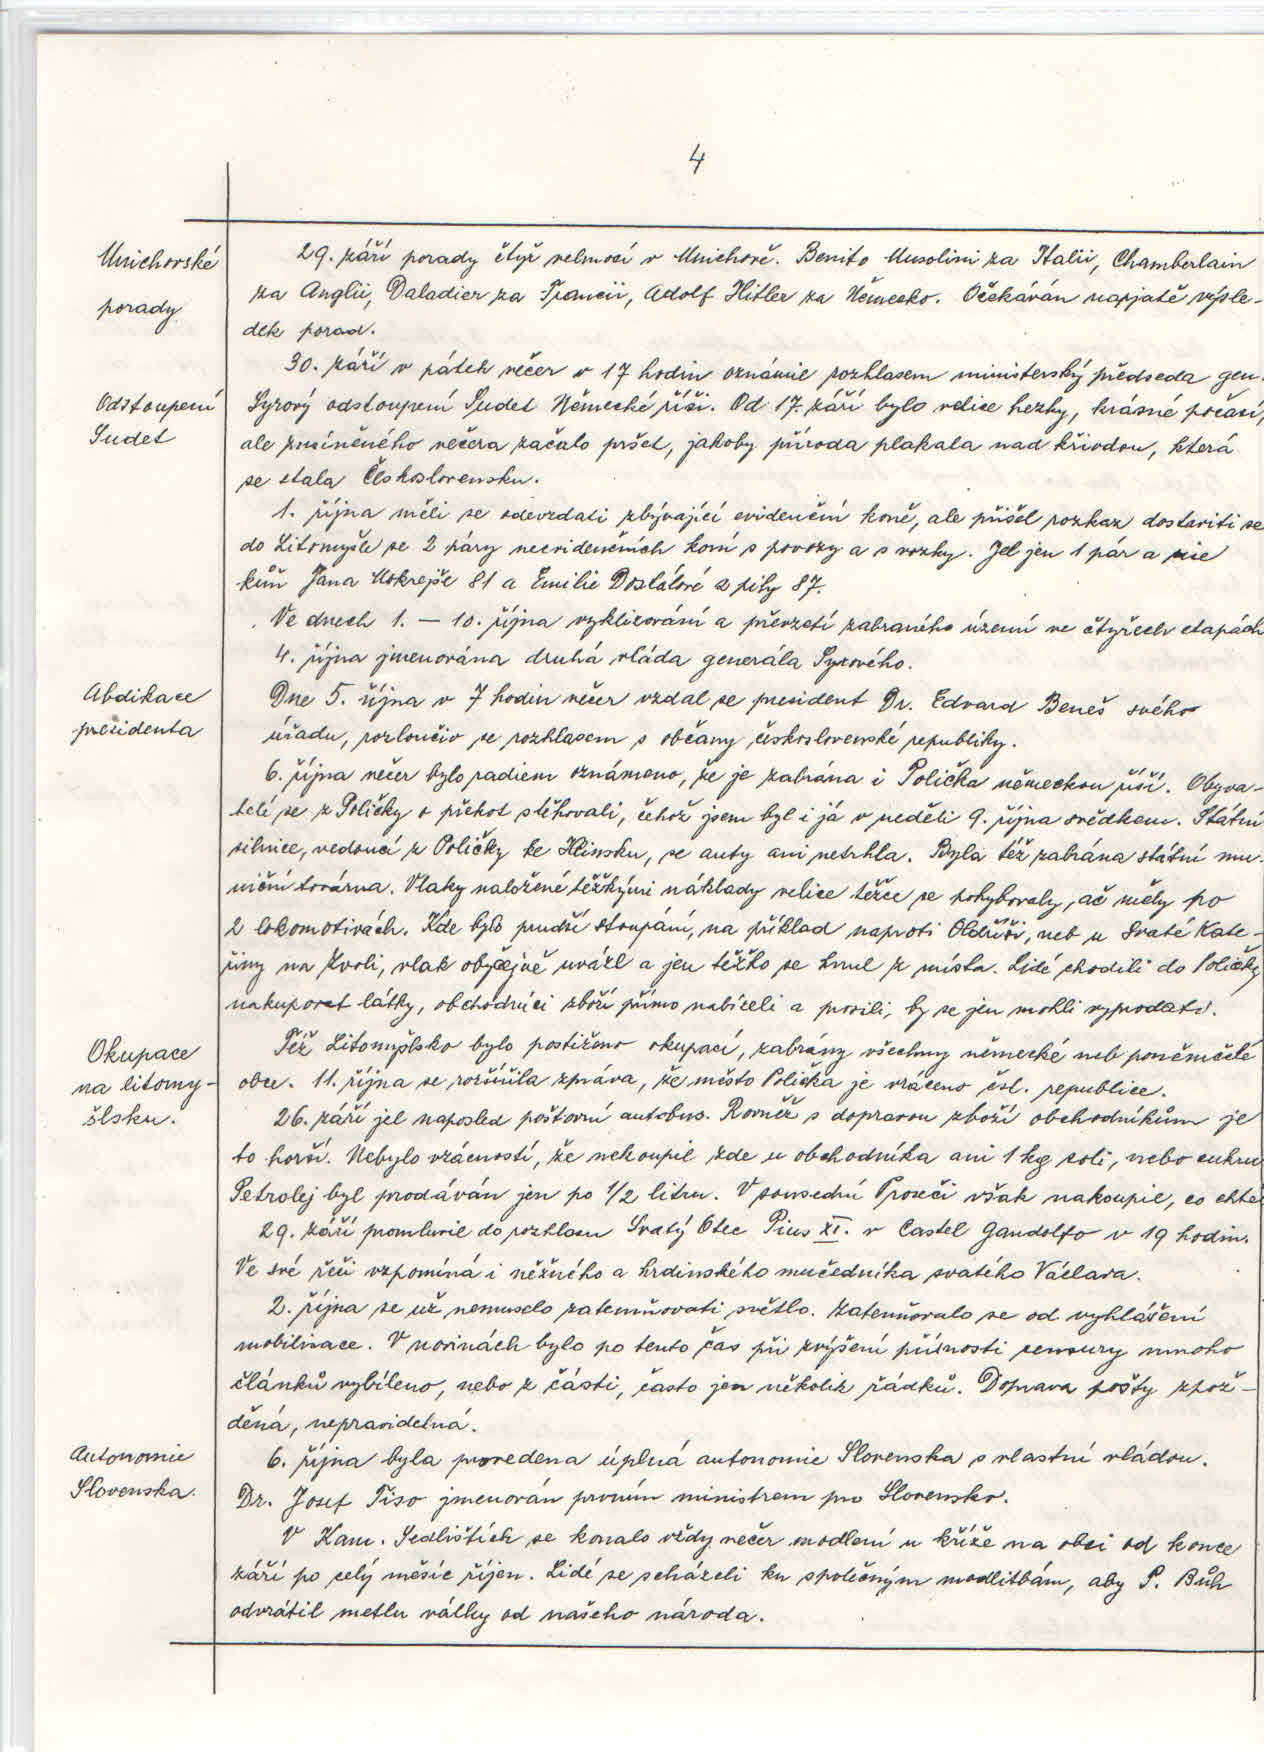 4
Mnichovské
porady
29. září porady čtyř velmocí v Mnichově. Benito Musolini za Italii, Chamberlain
za Anglii, Daladier za Francii, Adolf Hitler za Německo. Očekáván napjatě výsle-
dek porad.
30. září v pátek večer v 17 hodin oznámil rozhlasem ministerský předseda gen.
Odstoupení
Sudet
Syrový odstoupení Sudet Německé říši. Od 17. září bylo velice hezky, krásné počasí,
ale zmíněného večera začalo pršet, jakoby příroda plakala nad křivdou, která
se stala Československu.
1. října měli se odevzdati zbývající evidenční koně, ale přišel rozkaz dostaviti se
do Litomyšle se 2 páry neevidenčních koní s povozy a s vozky. Jel jen 1 pár a sice
kůň Jana Mokrejše 81 a Emilie Dostálové z pily 87.
Ve dnech 1. – 10. října vyklizování a převzetí zabraného území ve čtyřech etapách
4. října jmenována druhá vláda generála Syrového.
Abdikace
presidenta
Dne 5. října v 7 hodin večer vzdal se president Dr. Edvard Beneš svého
úřadu, rozloučiv se rozhlasem s občany československé republiky.
6. října večer bylo radiem oznámeno, že je zabrána i Polička německou říší. Obyva-
telé se z Poličky o překot stěhovali, čehož jsem byl i já v neděli 9. října svědkem. Státní
silnice, vedoucí z Poličky ke Hlinsku, se auty ani netrhla. Byla též zabrána státní mu-
niční továrna. Vlaky naložené těžkými náklady velice těžce se pohybovaly, ač měly po
2 lokomotivách. Kde bylo prudší stoupání, na příklad naproti Oldřiši, neb u Svaté Kate-
řiny na Zvoli, vlak obyčejně uvázl a jen těžko se hnul z místa. Lidé chodili do Poličky
nakupovat látky, obchodníci zboží přímo nabízeli a prosili, by se jen mohli vyprodati.
Okupace
na litomy-
šlsku.
Též Litomyšlsko bylo postiženo okupací, zabrány všechny německé neb poněmčelé
obce. 11. října se rozšířila zpráva, že město Polička je vráceno čsl. republice.
26. září jel naposled poštovní autobus. Rovněž s dopravou zboží obchodníkům je
to horší. Nebylo vzácností, že nekoupil zde u obchodníka ani 1 kg soli, nebo cukru
Petrolej byl prodáván jen po 1/2 litru. V sousední Proseči však nakoupil, co chtěl
29. září promluvil do rozhlasu Svatý Otec Pius XI. v Castel Gandolfo v 19 hodin.
Ve své řeči vzpomíná i něžného a hrdinského mučedníka svatého Václava.
2. října se už nemuselo zatemňovati světlo. Zatemňovalo se od vyhlášení
mobilisace. V novinách bylo po tento čas při zvýšení přísnosti censury mnoho
článků vybíleno, nebo z části, často jen několik řádků. Doprava pošty zpož-
děná, nepravidelná.
Autonomie
Slovenska.
6. října byla provedena úplná autonomie Slovenska s vlastní vládou.
Dr. Josef Tiso jmenován prvním ministrem pro Slovensko.
V Kam. Sedlištích se konalo vždy večer modlení u kříže na obci od konce
září po celý měsíc říjen. Lidé se scházeli ku společným modlitbám, aby P. Bůh
odvrátil metlu války od našeho národa.